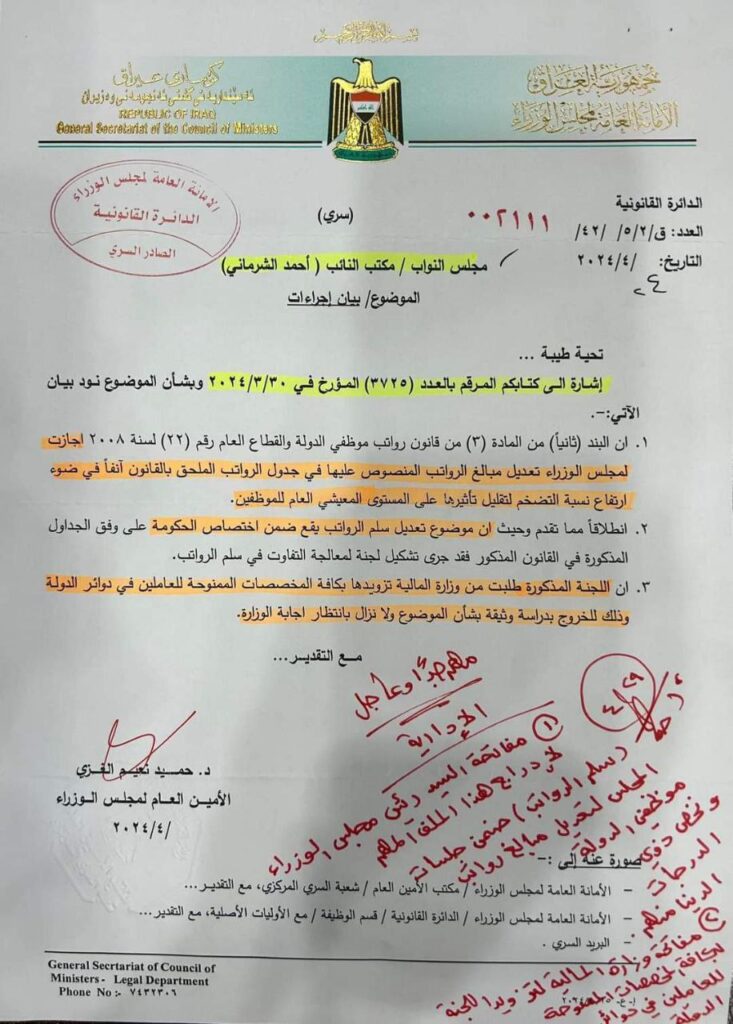 بسم الله الرحمن الرحيم
جمهورية العراق
الأمانة العامة لمجلس الوزراء
كۆماری عیراق
REPUBLIC OF IRAQ
General Secretariat of the Council of Ministers
الامانة العامة لمجلس الوزراء
الدائرة القانونية
الصادر السري
الدائرة القانونية
(سري)
٠٠٢١١١
العدد: ق/٥/٢/ /٤٢/
التاريخ: /٢٠٢٤/٤
٢٤
مجلس النواب / مكتب النائب ( أحمد الشرماني)
الموضوع/ بيان إجراءات
تحية طيبة ...
إشارة الى كتابكم المرقم بالعدد (٣٧٢٥) المؤرخ في ٢٠٢٤/٣/٣٠ وبشأن الموضوع نود بيان
الآتي:-.
١. ان البند (ثانياً) من المادة (٣) من قانون رواتب موظفي الدولة والقطاع العام رقم (٢٢) لسنة ٢٠٠٨ اجازت
لمجلس الوزراء تعديل مبالغ الرواتب المنصوص عليها في جدول الرواتب الملحق بالقانون آنفاً في ضوء
ارتفاع نسبة التضخم لتقليل تأثيرها على المستوى المعيشي العام للموظفين.
٢. انطلاقاً مما تقدم وحيث ان موضوع تعديل سلم الرواتب يقع ضمن اختصاص الحكومة على وفق الجداول
المذكورة في القانون المذكور فقد جرى تشكيل لجنة لمعالجة التفاوت في سلم الرواتب.
٣. ان اللجنة المذكورة طلبت من وزارة المالية تزويدها بكافة المخصصات الممنوحة للعاملين في دوائر الدولة
وذلك للخروج بدراسة وثيقة بشأن الموضوع ولا نزال بانتظار اجابة الوزارة.
مع التقدير...
د. حميد نعيم الغزي
الأمين العام لمجلس الوزراء
/٢٠٢٤/٤
أحمد
٤/٢٩
مهم جداً وعاجل
الإدارية
١) مفاتحة السيد رئيس مجلس الوزراء
لإدراج هذا الملف المهم
(سلم الرواتب) ضمن جلسات
المجلس لتعديل مبالغ رواتب
موظفي الدولة
ونخص ذوي
الدرجات
الدنيا منهم.
٢) مفاتحة وزارة المالية لتزويد اللجنة
بكافة المخصصات الممنوحة
للعاملين في دوائر
الدولة
صورة عنه إلى :-
– الأمانة العامة لمجلس الوزراء/ مكتب الأمين العام / شعبة السري المركزي، مع التقدير...
– الأمانة العامة لمجلس الوزراء / الدائرة القانونية / قسم الوظيفة / مع الأوليات الأصلية، مع التقدير...
– البريد السري .
General Secrtariat of Council of
Ministers- Legal Department
Phone No :- ٧٤٣٢٣٠٦